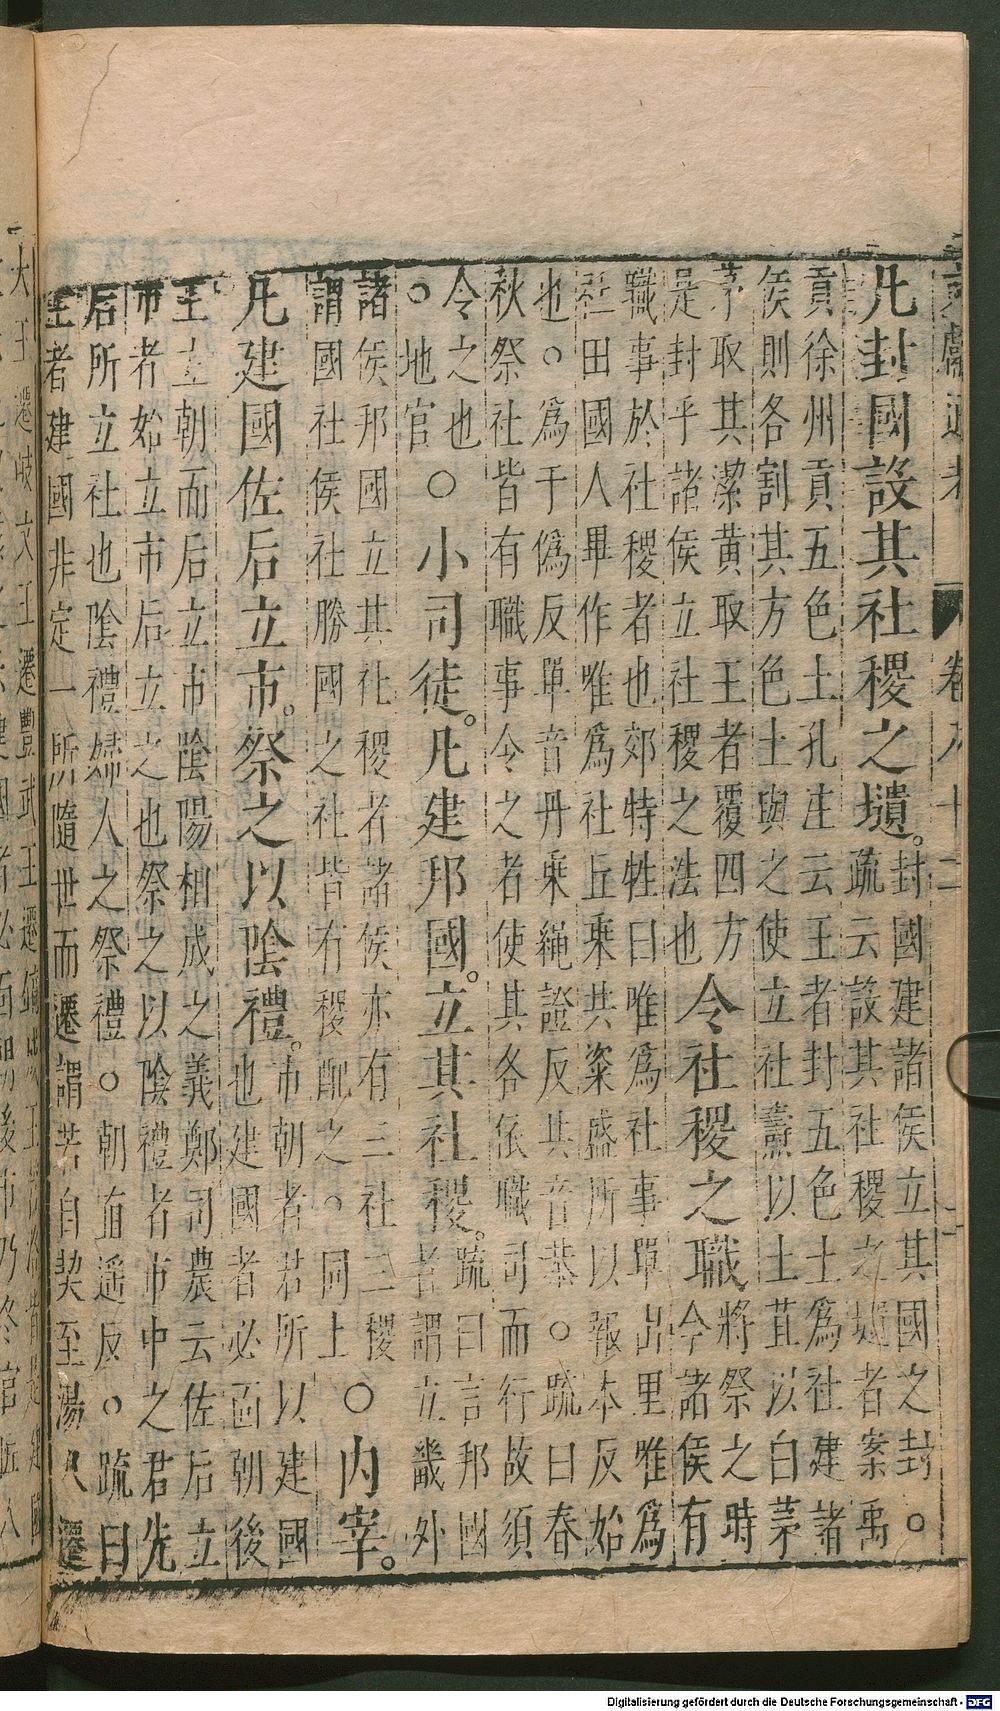 凡封國設其社稷之壝。封國建諸侯立其國之封○
疏云設其社稷之壝者案禹
貢徐州貢五色土孔注云王者封五色土為社建諸
侯則各割其方色土與之使立社燾以土苴以白茅
茅取其潔黃取王者覆四方
是封乎諸侯立社稷之法也
令社稷之職將祭之時
令諸侯有
職事於社稷者也郊特牲曰唯為社事單出里唯為
社田國人畢作唯為社丘乘共粢盛所以報本反始
也○為于偽反單音丹乘繩證反共音恭○疏曰春
秋祭社皆有職事令之者使其各依職司而行故須
令之也
○地官
○小司徒。凡建邦國。立其社稷。疏曰言邦國
者謂立畿外
諸侯邦國立其社稷者諸侯亦有三社三稷
謂國社侯社勝國之社皆有稷配之○同上
○內宰。
凡建國佐后立市。祭之以陰禮。市朝者君所以建國
也建國者必面朝後
市王立朝而后立市陰陽相成之義鄭司農云佐后立
市者始立市后立之也祭之以陰禮者市中之君先
后所立社也陰禮婦人之祭禮○朝直遥反○疏曰
王者建國非定一所隨世而遷謂若自契至湯八遷
卷八十二
Digitalisierung gefördert durch die Deutsche Forschungsgemeinschaft - DFG